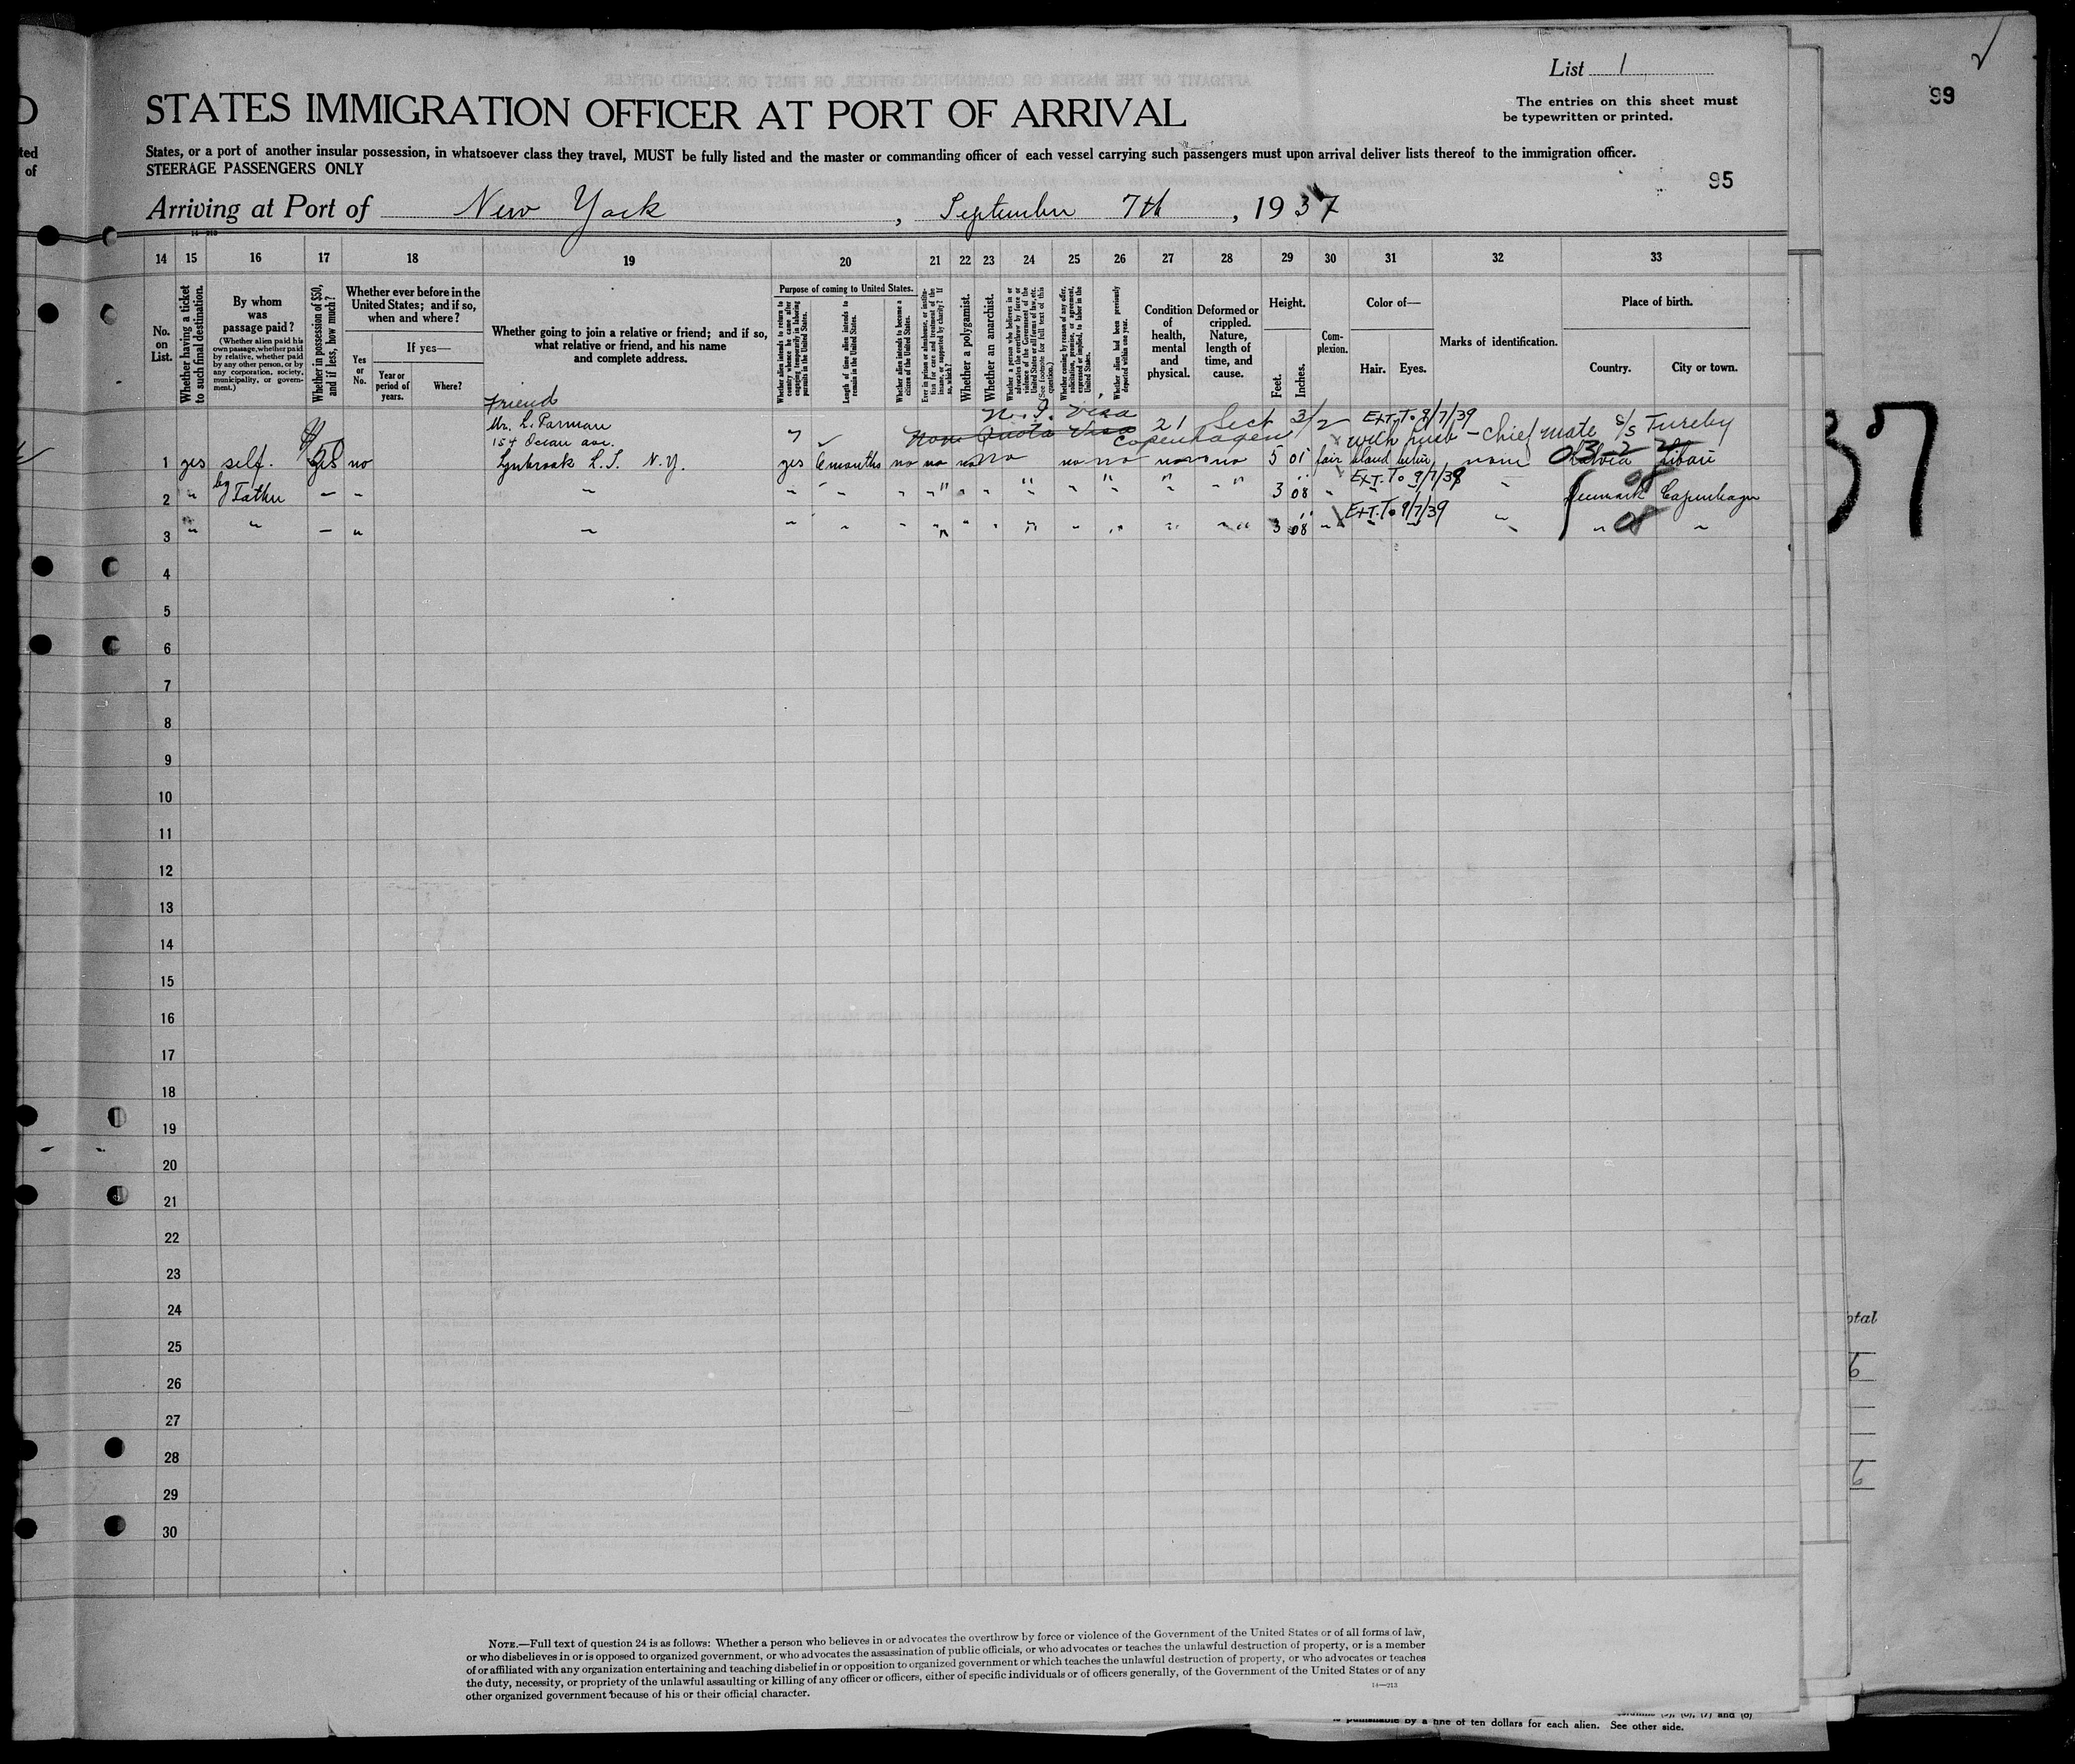 List 1
99
STATES IMMIGRATION OFFICER AT PORT OF ARRIVAL
The entries on this sheet must
be typewritten or printed.
States, or a port of another insular possession, in whatsoever class they travel, MUST be fully listed and the master or commanding officer of each vessel carrying such passengers must upon arrival deliver lists thereof to the immigration officer.
STEERAGE PASSENGERS ONLY
95
Arriving at Port of New York, September 7th, 1937
14 15 16 17 18 19 20 21 22 23 24 25 26 27 28 29 30 31 32 33
No. on List.
Whether having a ticket to such final destination.
By whom was passage paid?
(Whether alien paid his own passage, whether paid by relative, whether paid by any other person, or by any corporation, society, municipality, or government.)
Whether in possession of $50, and if less, how much?
Whether ever before in the United States; and if so, when and where?
Yes or No.
If yes—
Year or period of years.
Where?
Whether going to join a relative or friend; and if so, what relative or friend, and his name and complete address.
Purpose of coming to United States.
Whether alien intends to return to country whence he came after engaging temporarily in laboring pursuits in the United States.
Length of time alien intends to remain in the United States.
Whether alien intends to become a citizen of the United States.
Ever in prison or almshouse, or institution for care and treatment of the insane, or supported by charity? If so, which?
Whether a polygamist.
Whether an anarchist.
Whether a person who believes in or advocates the overthrow by force or violence of the Government of the United States or all forms of law, etc. (See footnote for full text of this question.)
Whether coming by reason of any offer, solicitation, promise, or agreement, expressed or implied, to labor in the United States.
Whether alien had been previously deported within one year.
Condition of health, mental and physical.
Deformed or crippled. Nature, length of time, and cause.
Height.
Feet. Inches.
Complexion.
Color of—
Hair. Eyes.
Marks of identification.
Place of birth.
Country. City or town.
Friend
Mr. L. Parman
154 Ocean ave.
N.I. Visa 21 Sect 3/2 Ext. To 9/7/39
Non Quota Visa Copenhagen with husb - Chief mate s/s Tureby
1 yes self. yes no Lynbrook L.I. N.Y. yes 6 months no no no no no no no no 5 01 fair blond none Latvia Libau
2 " by Father — " " " " " " " " " " " " 3 08 " Ext. To 9/7/39 " Denmark Copenhagen
3 " " — " " " " " " " " " " " " 3 08 " Ext. To 9/7/39 " " 08 "
37
4
5
6
7
8
9
10
11
12
13
14
15
16
17
18
19
20
21
22
23
24
25
26
27
28
29
30
otal
6
6
NOTE.—Full text of question 24 is as follows: Whether a person who believes in or advocates the overthrow by force or violence of the Government of the United States or of all forms of law,
or who disbelieves in or is opposed to organized government, or who advocates the assassination of public officials, or who advocates or teaches the unlawful destruction of property, or is a member
of or affiliated with any organization entertaining and teaching disbelief in or opposition to organized government or which teaches the unlawful destruction of property, or who advocates or teaches
the duty, necessity, or propriety of the unlawful assaulting or killing of any officer or officers, either of specific individuals or of officers generally, of the Government of the United States or of any
other organized government because of his or their official character.
14—213
is punishable by a fine of ten dollars for each alien. See other side.